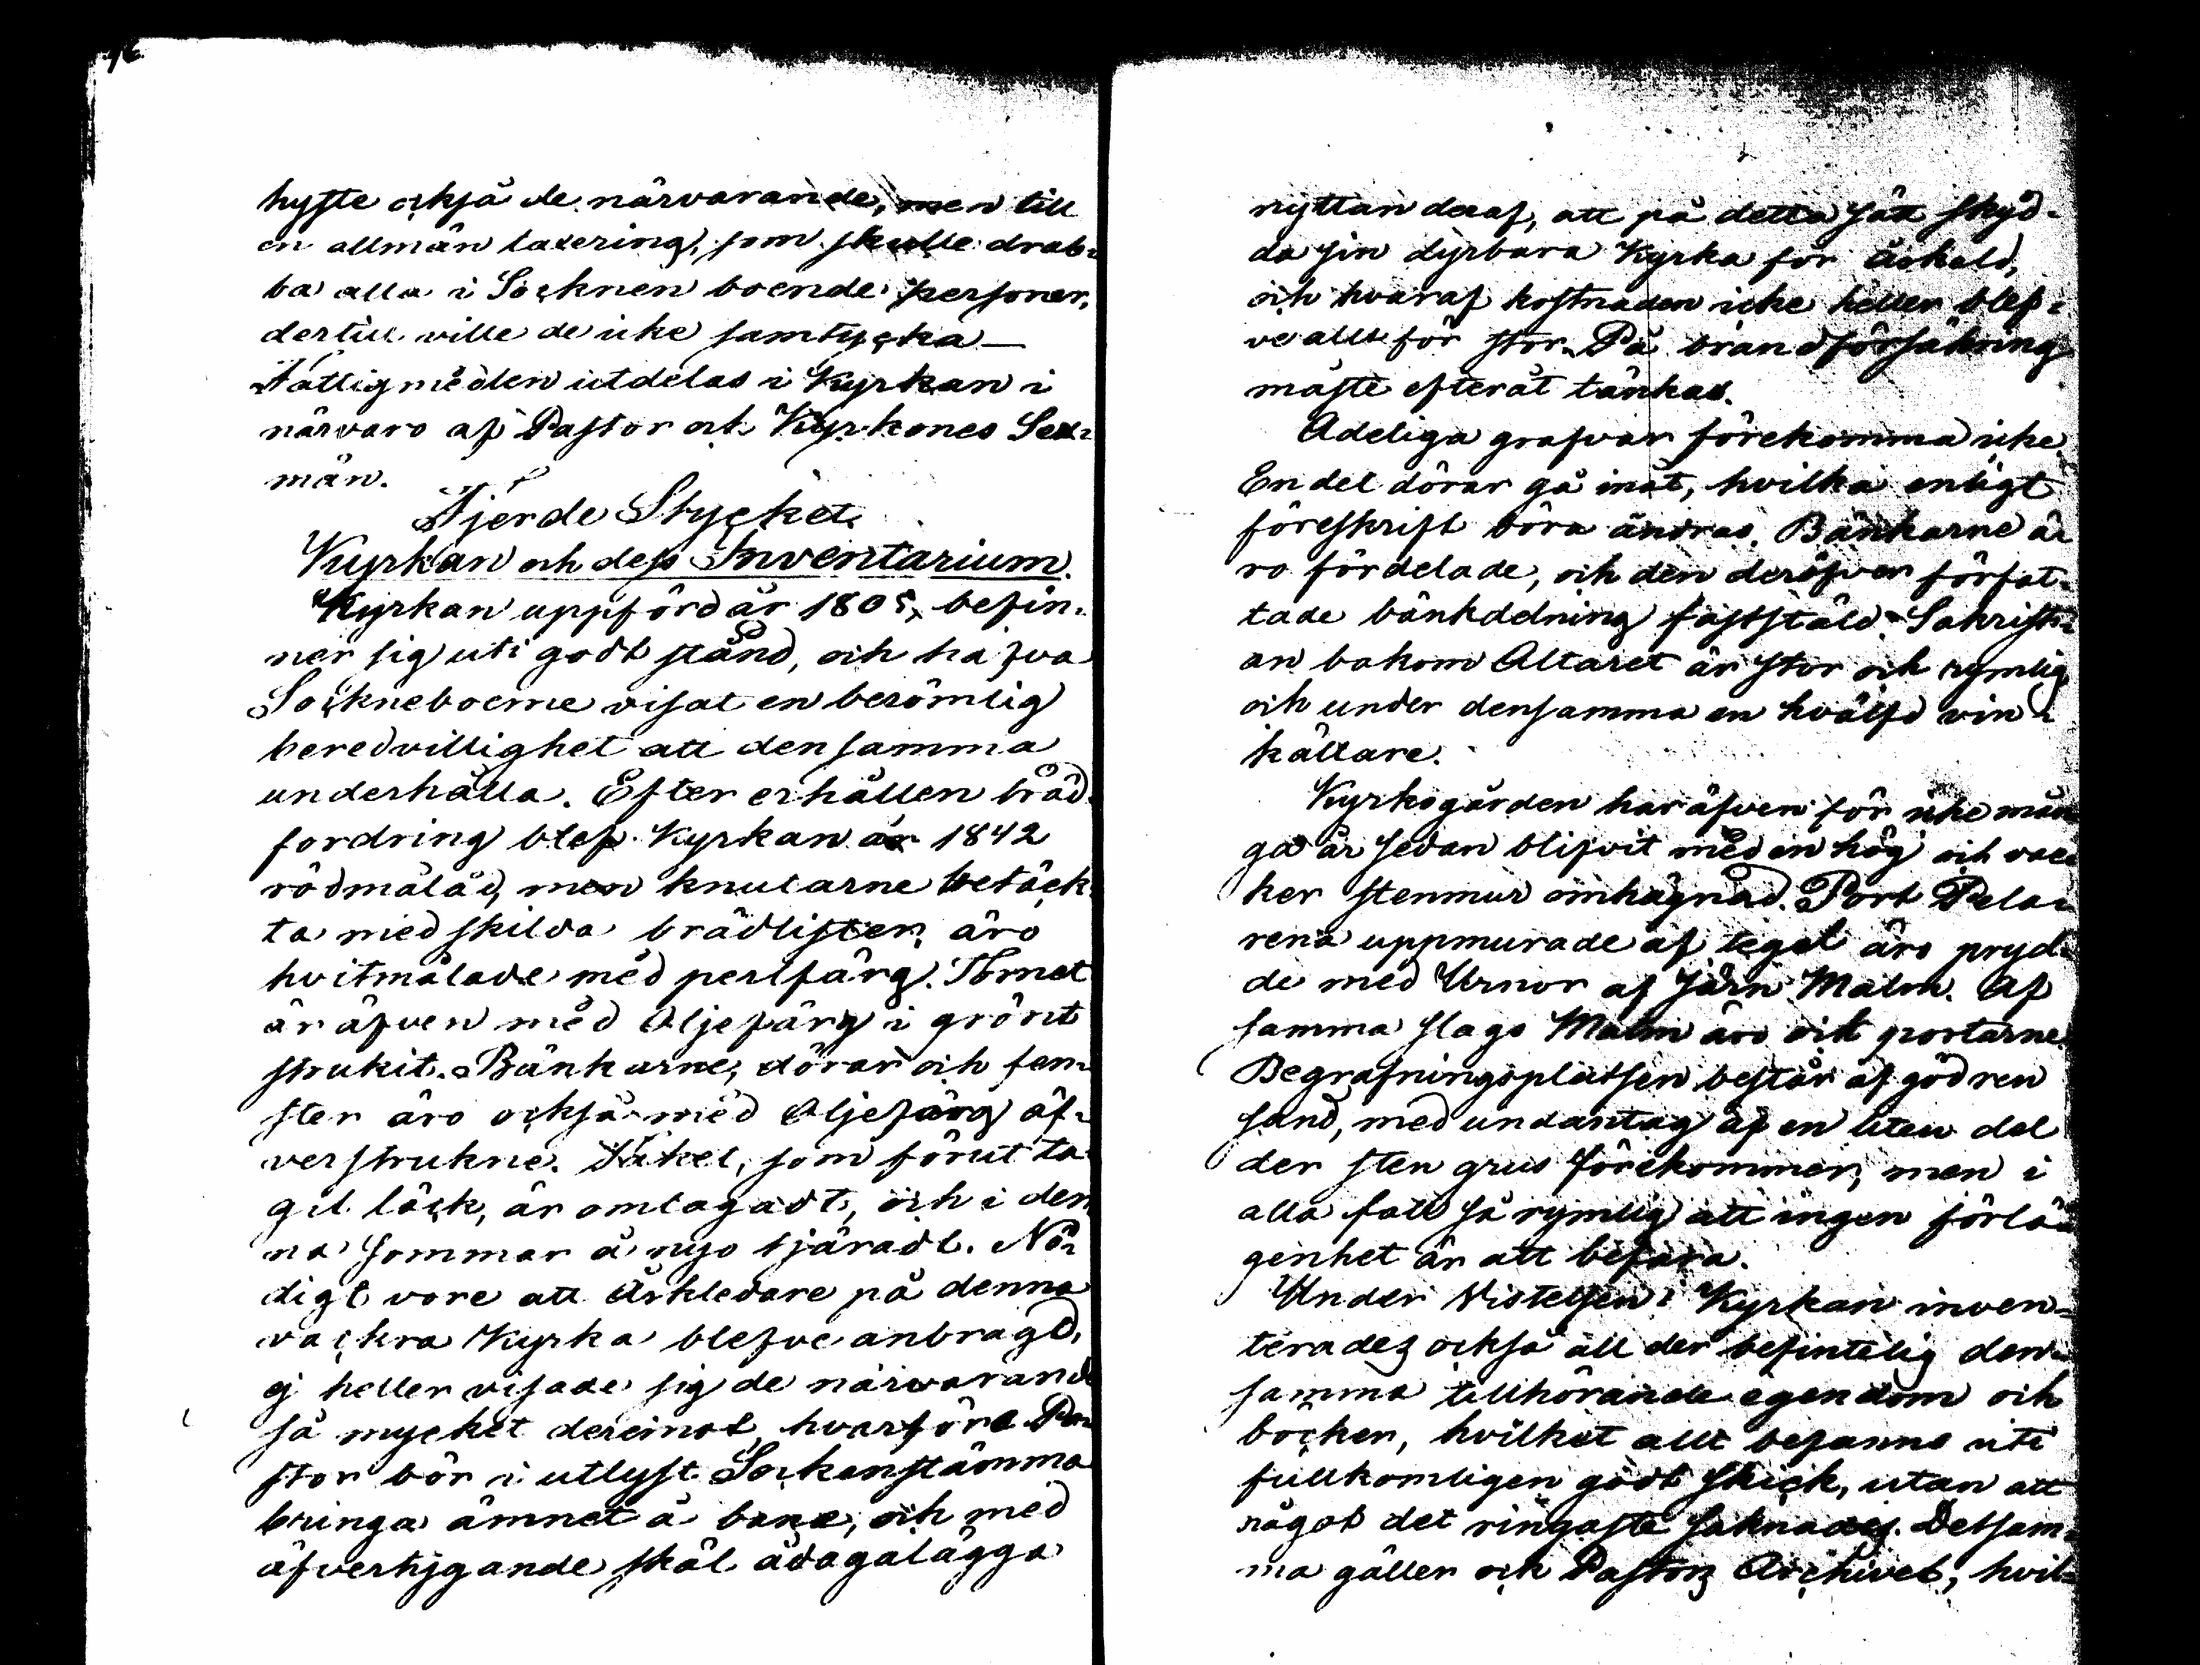 hyste också de närvarande, men till
en allmän taxering, som skulle drab-
ba alla i Socknen boende personer,
dertill ville de icke samtycka —
Fattigmedlen utdelas i Kyrkan i
närvaro af Pastor och Kyrkones Sex-
män.
Fjerde Stycket.
Kyrkan och dess Inventarium.
Kyrkan uppförd år 1805, befin-
ner sig uti godt stånd, och hafva
Sockneboerne visat en berömlig
beredvillighet att densamma
underhålla. Efter erhållen bräd-
fordring blef Kyrkan år 1842
rödmålad, men knutarne betäck-
ta med skilda brädlister, äro
hvitmålade med perlfärg. Tornet
är äfven med Oljefärg i grönt
strukit. Bänkarne, dörar och fen-
ster äro också med Oljefärg öf-
verstrukne. Taket, som förut ta-
git läck, är omlagadt, och i den-
na sommar å nyo tjäradt. Nö-
digt vore att Åskledare på denna
vackra Kyrka blefve anbragd,
ej heller visade sig de närvarande
så mycket deremot, hvarföre Pa-
stor bör i utlyst Sockenstämma
bringa ämnet å bane, och med
öfvertygande skäl ådagalägga
nyttan deraf, att på detta sätt skyd-
da sin dyrbara Kyrka för åskeld,
och hvaraf kostnaden icke heller blef-
ve allt för stor. På brandförsäkring
måste efteråt tänkas.
Adeliga grafvar förekomma icke.
En del dörar gå inåt, hvilka enligt
föreskrift böra ändras. Bänkarne ä-
ro fördelade, och den deröfver förfat-
tade bänkdelning fastställd. Sakristi-
an bakom Altaret är stor och rymlig
och under densamma en hvälfd vin-
källare.
Kyrkogården har äfven för icke mån-
ga år sedan blifvit med en hög och vac-
ker stenmur omhägnad. Port Pela-
rena uppmurade af tegel äro pryd-
de med Urnor af Järn Malm. Af
samma slags Malm äro och portarne.
Begrafningsplatsen består af god ren
sand, med undantag af en liten del
der sten grus förekommer, men i
alla fall så rymlig att ingen förlä-
genhet är att befara.
Under Vistelsen i Kyrkan inven-
terades också all der befintelig den-
samma tillhörande egendom och
böcker, hvilket allt befanns uti
fullkomligen godt skick, utan att
något det ringaste saknades. Detsam-
ma gäller och Pastors Archivet, hvil-